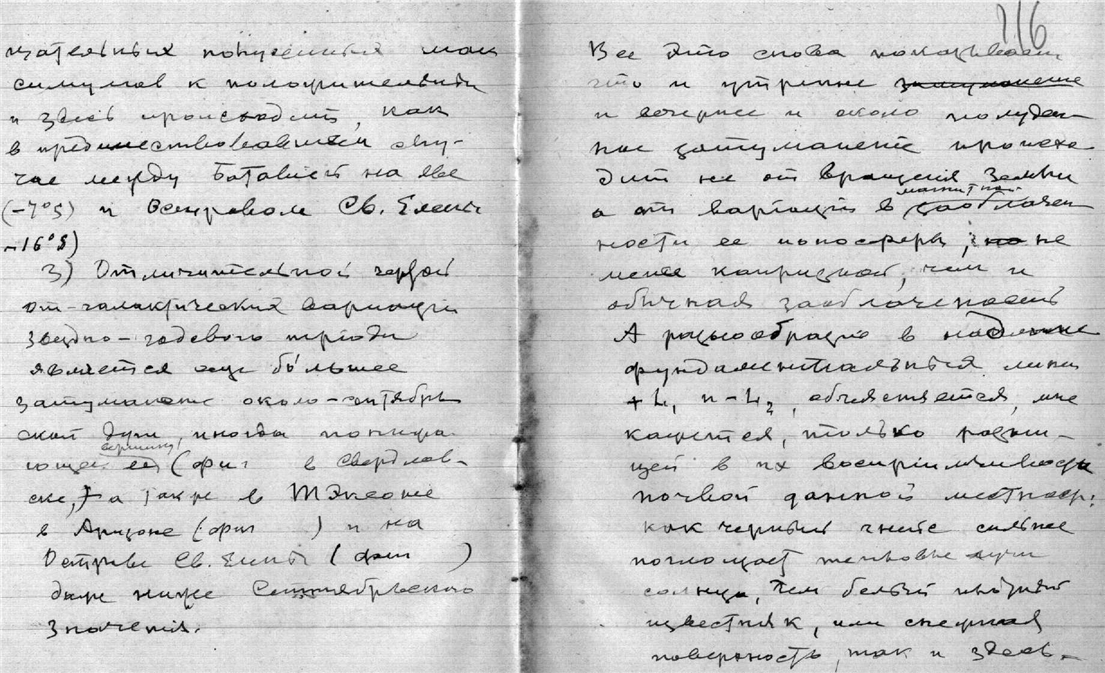 цательных полусонных мак
симумов к положительным
и здесь происходит, как
в предшествовавшем слу-
чае между Батавией на Яве
(-7°S) и Островом Св. Елены
-16°S)
3) Отличительной чертой
от-галактических вариаций
звездно-годового периода
является еще бо́льшее
затуманение около-октябрь
ской дуги, иногда понижа-
ющее вершину ее (фиг в Свердлов-
ске, а также в Тэксоне
в Аризоне (фиг ) и на
Острове Св. Елены (фиг )
даже ниже Сентябрьского
значения.
116
Все это снова показывает
что и утренне затуманение
и вечернее и около полуден-
ное затуманение происхо
дит не от вращения Земли
магнитной
а от вариаций в заоблачен
ности ее ионосферы, но не
менее капризной, чем и
обычная заоблаченность
А разнообразие в
фундаментальных линий
+L₁ и -L₂, объясняется, мне
кажется, только разни-
цей в их восприимчивости
почвой данной местност:
как черный гнейс сильнее
поглощает тепловые лучи
солнца, чем белый
известняк, или снежная
поверхность, так и здесь-